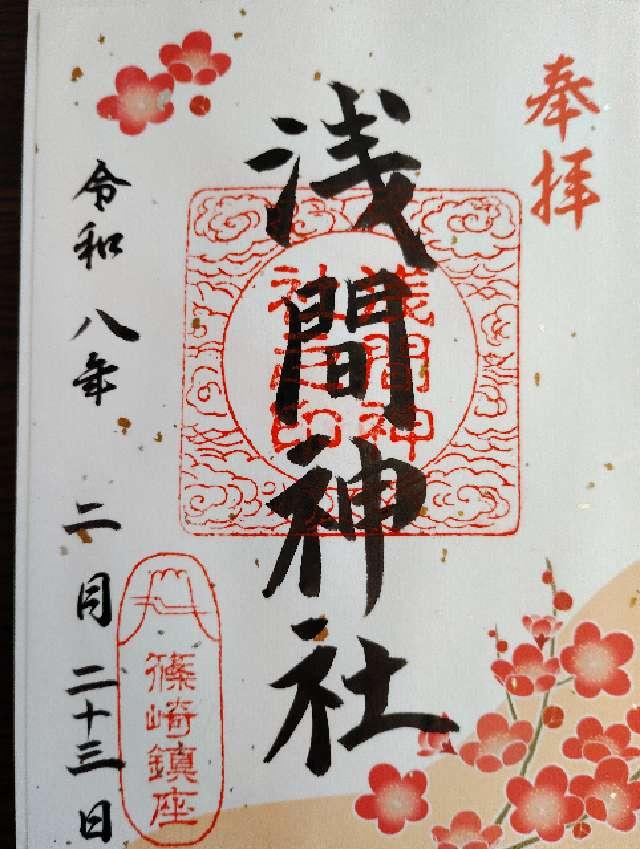 奉拝
浅間神社
浅間神
社之印
令和八年 二月二十三日
篠崎鎮座